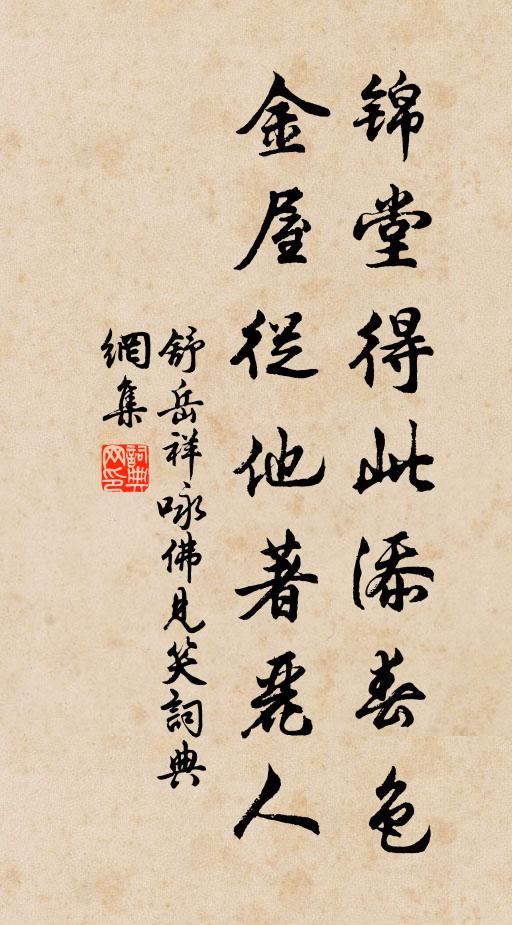 锦堂得此添春色
金屋從他著麗人
舒岳祥咏佛見笑詞典
網集
詞典
网印